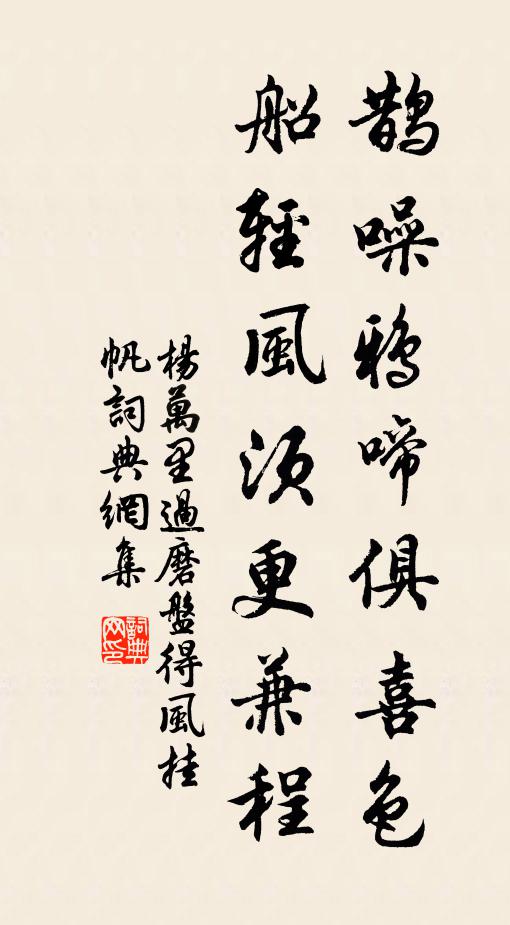 鵲噪鴉啼俱喜色
船輕風順更兼程
楊萬里過磨盤得風挂
帆詞典網集
詞典
网印